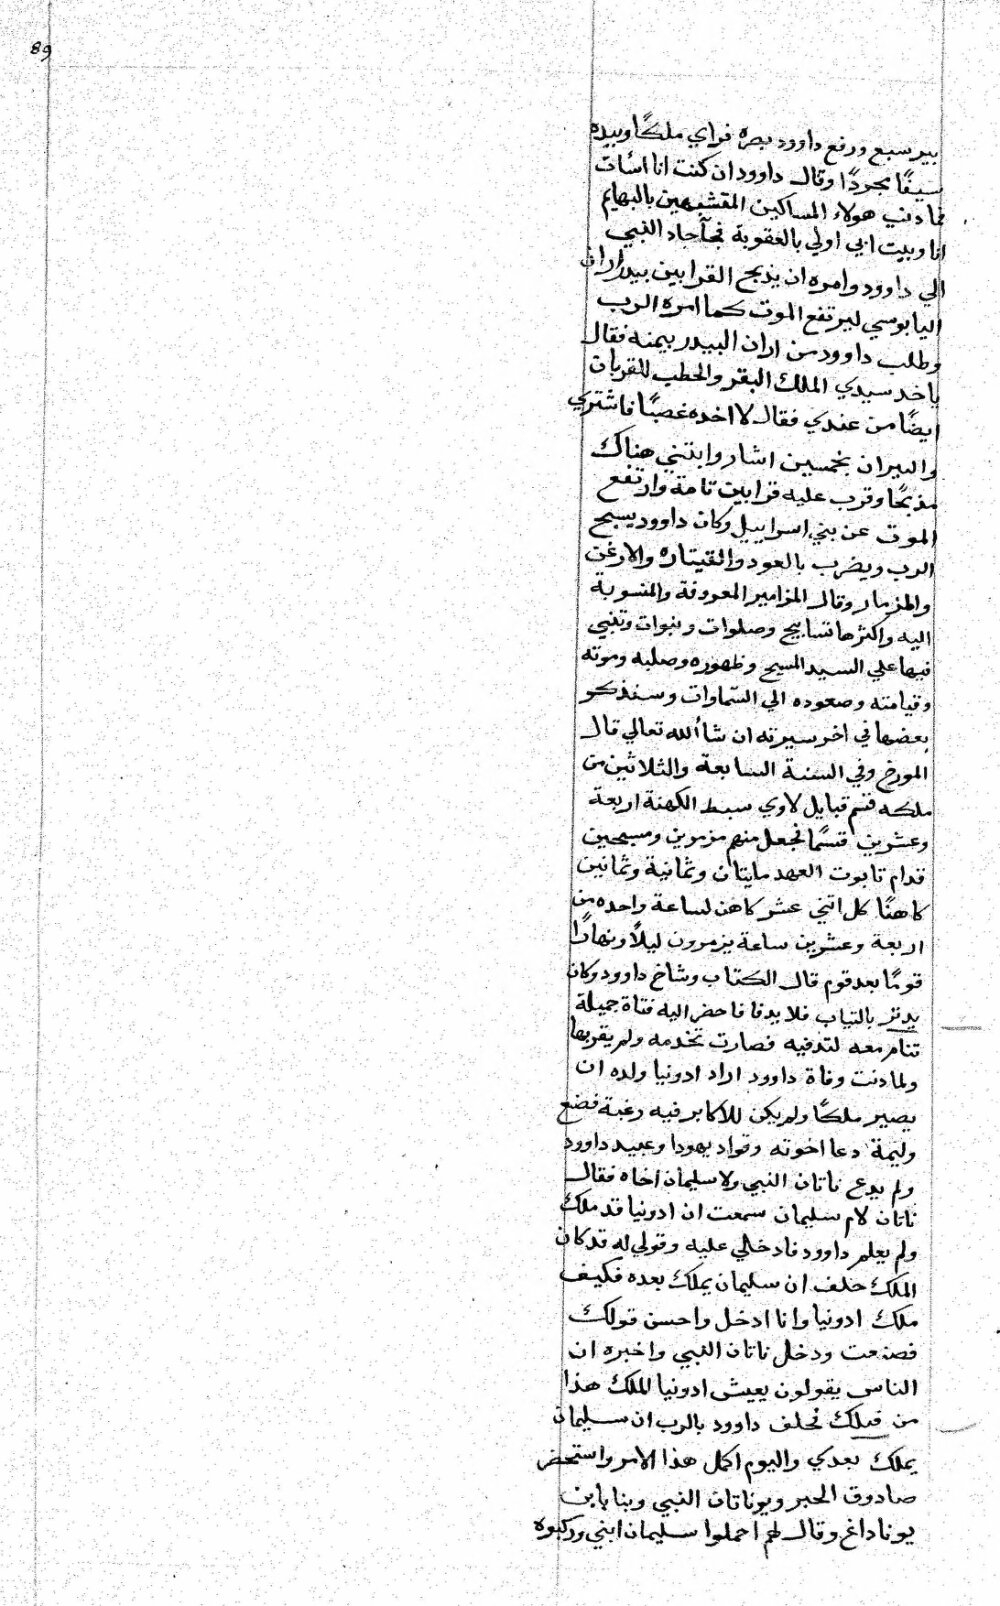 89
بير سبع ورفع داوود بصره فراي ملكًا وبيده
سيفًا مجردًا وقال داوود ان كنت انا اسات
فما دنب هولاء المساكين المتشبهين بالبهايم
انا وبيت ابي اولي بالعقوبة فجآ جاد النبي
الي داوود وامره ان يذبح القرابين بيدر اران
اليابوسي ليرتفع الموت كما امره الرب
وطلب داوود من اران البيدر بيمنه فقال
ياخد سيدي الملك البقر والحطب للقربان
ايضًا من عندي فقال لا اخده غصبًا فاشتري
والبيران بخمسين اشار وابتني هناك
مذبحًا وقرب عليه قرابين تامة وارتفع
الموت عن بني اسراييل وكان داوود يسبح
الرب ويضرب بالعود والقيتاره والارغن
والمزمار وقال المزامير المعروفة والمنسوبة
اليه واكثرها تسابيح وصلوات ونبوات وتنبي
فيها علي السيد المسيح وظهوره وصلبه وموته
وقيامته وصعوده الي السّماوات وسنذكر
بعضها في اخر سيرته ان شا الله تعالي قال
المورخ وفي السنة السابعة والثلاثين من
ملكه قسم قبايل لاوي سبط الكهنة اربعة
وعشرين قسمًا فجعل منهم مزمرين ومسبحين
قدام تابوت العهد مايتان وثمانية وثمانين
كاهنًا كل اتني عشر كاهن لساعة واحده من
اربعة وعشرين ساعة يزمرون ليلاً ونهارًا
قومًا بعد قوم قال الكتاب وشاخ داوود وكان
يدتر بالتياب فلا يدفا فاحضر اليه فتاة جميلة
تنام معه لتدفيه فصارت تخدمه ولم يقربها
ولما دنت وفاة داوود اراد ادونيا ولده ان
يصير ملكًا ولم يكن للاكابر فيه رغبة فصنع
وليمة دعا اخوته وقواد يهودا وعبيد داوود
ولم يدع ناتان النبي ولا سليمان اخاه فقال
ناتان لام سليمان سمعت ان ادونيا قد ملك
ولم يعلم داوود فادخلي عليه وقولي له قد كان
الملك حلف ان سليمان يملك بعده فكيف
ملك ادونيا وانا ادخل واحسن قولك
فصنعت ودخل ناتان النبي واخبره ان
الناس يقولون يعيش ادونيا الملك هذا
من قبلك فحلف داوود بالرب ان سليمان
يملك بعدي واليوم اكمل هذا الامر واستحضر
صادوق الحبر ويوناتان النبي وبنايا بن
يوناداع وقال لهم احملوا سليمان ابني وركبوه